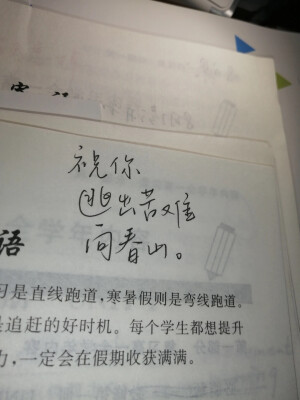 祝你
逃出苦难
向春山。
语
习是直线跑道，寒暑假则是弯线跑道。
是追赶的好时机。每个学生都想提升
力，一定会在假期收获满满。